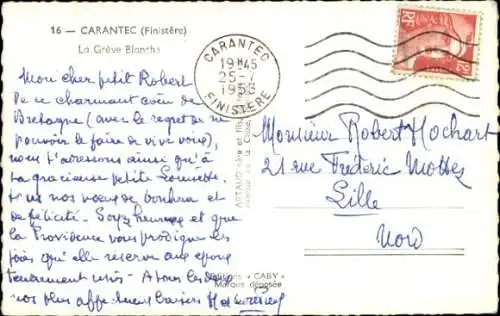 16 — CARANTEC (Finistère)
La Grève Blanche
Mon cher petit Robert
De ce charmant coin de
Bretagne (avec le regret de ne
pouvoir le faire de vive voix),
nous t'adressons ainsi qu'à
ta gracieuse petite
tous nos vœux de bonheur et
de félicité. Soyez heureux et que
la Providence vous prodigue les
joies qu'elle réserve aux époux
tendrement unis - A tous les deux
nos plus affectueux baisers
CARANTEC
19H45
25-7
1953
FINISTÈRE
Editions "CABY"
Marque déposée
Monsieur Robert Hochart
21 rue Frédéric Mottez
Lille
Nord